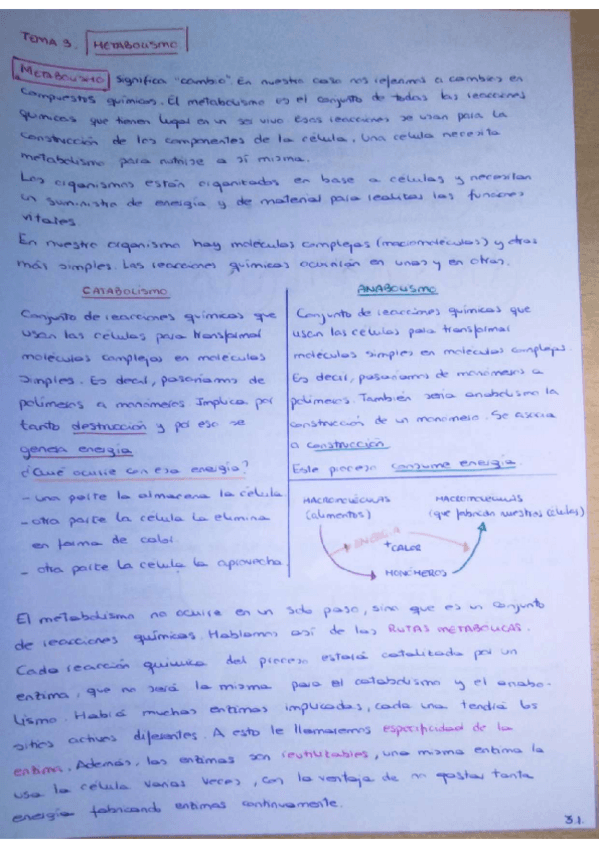 TEMA 3. METABOLISMO
METABOLISMO significa "cambio". En nuestro caso nos referimos a cambios en
compuestos químicos. El metabolismo es el conjunto de todas las reacciones
químicas que tienen lugar en un ser vivo. Esas reacciones se usan para la
construcción de los componentes de la célula. Una célula necesita
metabolismo para nutrirse a sí misma.
Los organismos están organizados en base a células y necesitan
un suministro de energía y de material para realizar las funciones
vitales.
En nuestro organismo hay moléculas complejas (macromoléculas) y otras
más simples. Las reacciones químicas ocurrirán en unas y en otras.
CATABOLISMO
Conjunto de reacciones químicas que
usan las células para transformar
moléculas complejas en moléculas
simples. Es decir, pasaríamos de
polímeros a monómeros. Implica por
tanto destrucción y por eso se
genera energía
¿Qué ocurre con esa energía?
- una parte la almacena la célula
- otra parte la célula la elimina
en forma de calor.
- otra parte la célula la aprovecha.
ANABOLISMO
Conjunto de reacciones químicas que
usan las células para transformar
moléculas simples en moléculas complejas.
Es decir, pasaríamos de monómeros a
polímeros. También sería anabolismo la
construcción de un monómero. Se asocia
a construcción.
Este proceso consume energía.
MACROMOLÉCULAS
(alimentos)
MACROMOLÉCULAS
(que fabrican nuestras células)
ENERGÍA
+CALOR
MONÓMEROS
El metabolismo no ocurre en un solo paso, sino que es un conjunto
de reacciones químicas. Hablamos así de las RUTAS METABÓLICAS.
Cada reacción química del proceso estará catalizada por un
enzima, que no será la misma para el catabolismo y el anabo-
lismo. Habrá muchas enzimas implicadas, cada una tendrá los
sitios activos diferentes. A esto le llamaremos especificidad de la
enzima. Además, las enzimas son reutilizables, una misma enzima la
usa la célula varias veces, con la ventaja de no gastar tanta
energía fabricando enzimas continuamente.
3.1.